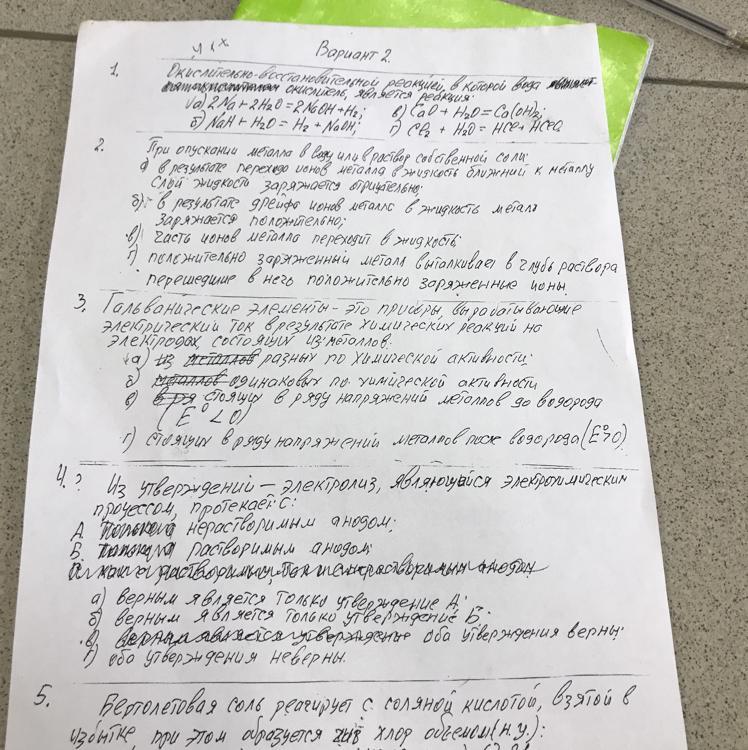 Вариант 2.
1. Окислительно-восстановительной реакцией, в которой вода
окислитель, является реакция:
а) 2Na + 2H₂O = 2NaOH + H₂; в) CaO + H₂O = Ca(OH)₂;
б) NaH + H₂O = H₂ + NaOH; г) Cl₂ + H₂O = HCl + HClO
2. При опускании металла в воду или в раствор собственной соли:
а) в результате перехода ионов металла в жидкость ближний к металлу
слой жидкости заряжается отрицательно;
б) в результате дрейфа ионов металла в жидкость металл
заряжается положительно;
в) часть ионов металла переходит в жидкость;
г) положительно заряженный металл выталкивает в глубь раствора
перешедшие в него положительно заряженные ионы.
3. Гальванические элементы - это приборы, вырабатывающие
электрический ток в результате химических реакций на
электродах, состоящих из металлов:
а) разных по химической активности;
б) одинаковых по химической активности
в) стоящих в ряду напряжений металлов до водорода
(E° < 0)
г) стоящих в ряду напряжений металлов после водорода (E°>0).
4. ? Из утверждений — электролиз, являющийся электрохимическим
процессом, протекает с:
А. нерастворимым анодом;
Б. растворимым анодом;
а) верным является только утверждение А;
б) верным является только утверждение Б;
в) оба утверждения верны;
г) оба утверждения неверны.
5. Бертолетовая соль реагирует с соляной кислотой, взятой в
избытке, при этом образуется хлор объемом (н.у.):